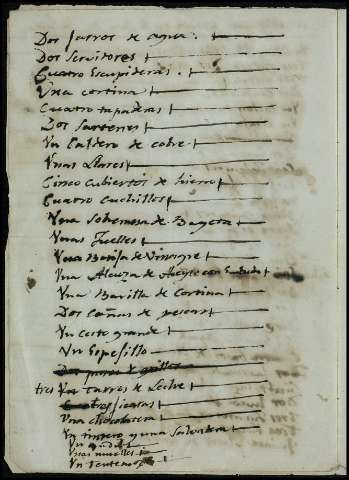 Dos Jarros de agua.
Dos Servitores
Cuatro Escupideras.
Una cortina
Cuatro tapaderas
Dos Sartenes
Un Caldero de cobre
Unas Llares
Cinco Cubiertos de hierro
Cuatro Cuchillos
Una Sobremesa de Bayeta
Unos Fuelles
Una Basija de Vinagre
Una Alcuza de Aceyte con Embudo
Una Barilla de Cortina
Dos Cañas de pescar
Un Ceste grande
Un Espesillo
Dos pares de grillos
tres Tarros de Leche
tres
Una chocolatera
Un tintero y una Salvadera
Un
Unas
Un